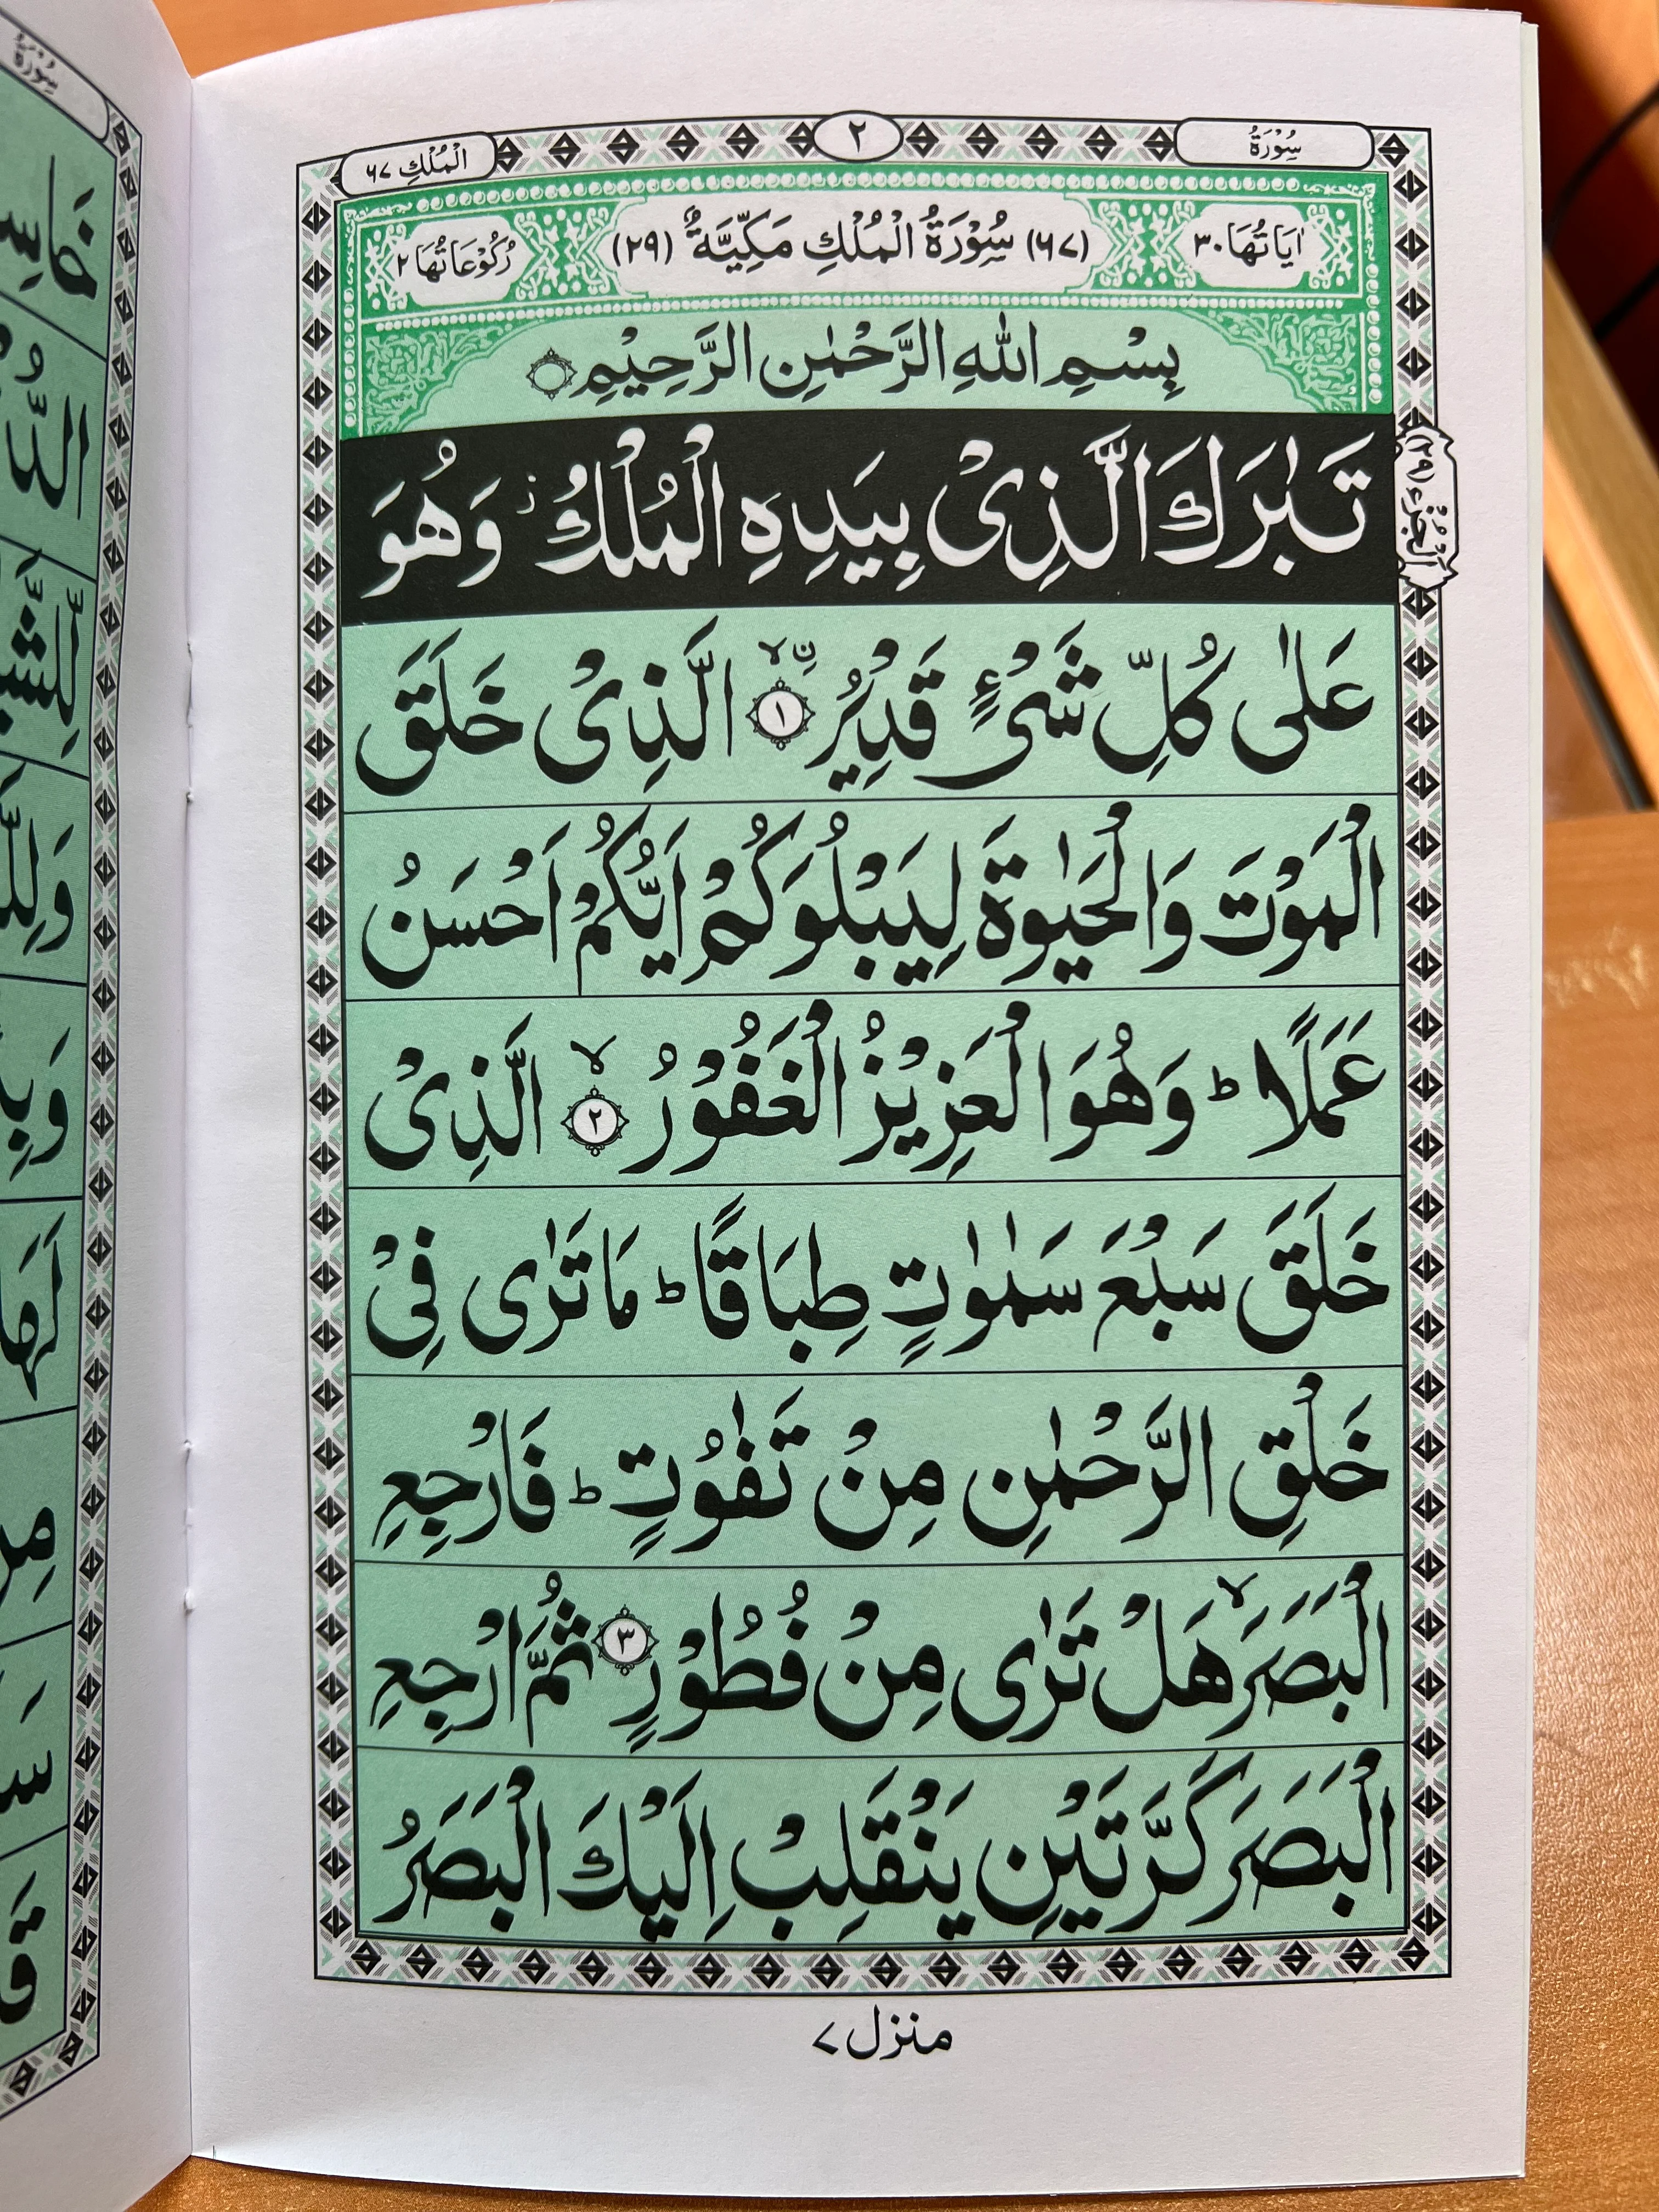 سُوْرَةُ
٢
الْمُلْكِ ٦٧
اٰيَاتُهَا ٣٠
(٦٧) سُوْرَةُ الْمُلْكِ مَكِّيَّةٌ (٢٩)
رُكُوْعَاتُهَا ٢
بِسْمِ اللّٰهِ الرَّحْمٰنِ الرَّحِيْمِ
اَلْجُزْءُ (٢٩)
تَبٰرَكَ الَّذِىْ بِيَدِهِ الْمُلْكُ ز وَهُوَ
عَلٰى كُلِّ شَىْءٍ قَدِيْرُ ۨ ۙ ١ الَّذِىْ خَلَقَ
الْمَوْتَ وَالْحَيٰوةَ لِيَبْلُوَكُمْ اَيُّكُمْ اَحْسَنُ
عَمَلًا ؕ وَهُوَ الْعَزِيْزُ الْغَفُوْرُ ۙ ٢ الَّذِىْ
خَلَقَ سَبْعَ سَمٰوٰتٍ طِبَاقًا ؕ مَا تَرٰى فِىْ
خَلْقِ الرَّحْمٰنِ مِنْ تَفٰوُتٍ ؕ فَارْجِعِ
الْبَصَرَ ۙ هَلْ تَرٰى مِنْ فُطُوْرٍ ٣ ثُمَّ ارْجِعِ
الْبَصَرَ كَرَّتَيْنِ يَنْقَلِبْ اِلَيْكَ الْبَصَرُ
منزل ٧